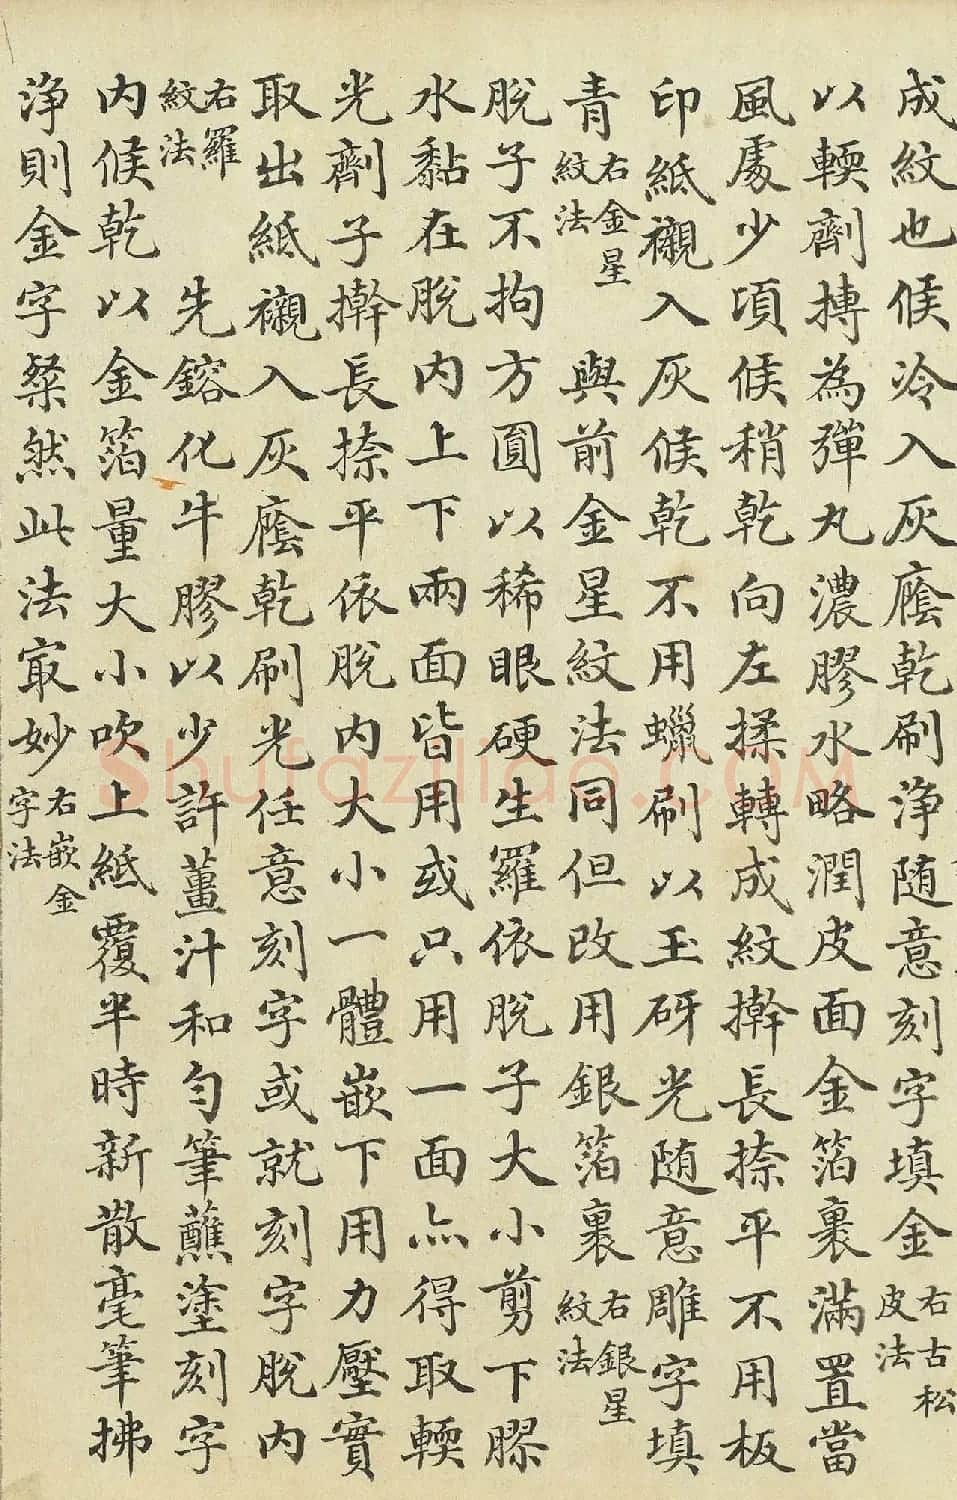 成紋也候冷入灰廕乾刷淨随意刻字填金右古松皮法
以輭劑摶為彈丸濃膠水略潤皮面金箔裹滿置當
風處少頃候稍乾向左揉轉成紋擀長捺平不用板
印紙襯入灰候乾不用蠟刷以玉砑光随意雕字填
青右金星紋法 與前金星紋法同但改用銀箔裹右銀星紋法
脫子不拘方圓以稀眼硬生羅依脫子大小剪下膠
水黏在脫內上下兩面皆用或只用一面亦得取輭
光劑子擀長捺平依脫內大小一體嵌下用力壓實
取出紙襯入灰廕乾刷光任意刻字或就刻字脫內
右羅紋法 先鎔化牛膠以少許薑汁和勻筆蘸塗刻字
內候乾以金箔量大小吹上紙覆半時新散毫筆拂
淨則金字粲然此法㝡妙右嵌金字法
Shufaziliao.COM